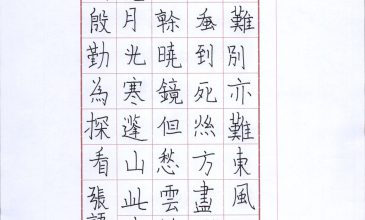 難別亦難東風
蚕到死絲方盡
乾曉鏡但愁雲
月光寒蓬山此
殷勤為探看張